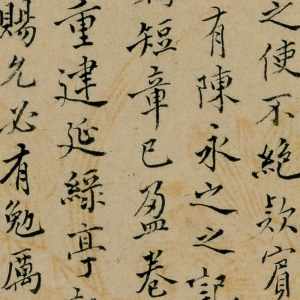 之使不絶欵賓
有陳永之之記
短章已盈卷
重建延緑亭
賜允必有勉厲